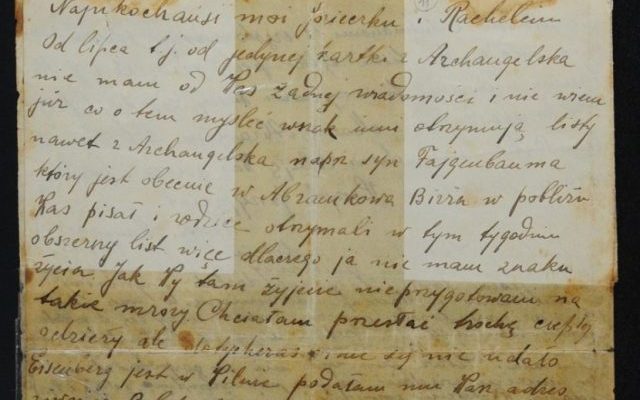 Najukochańsi moi Józieczku i Rachelciu
Od lipca t.j. od jedynej kartki z Archangelska
nie mam od Was żadnej wiadomości i nie wiem
już co o tem myśleć wszak inni otrzymują listy
nawet z Archangelska napr. syn Fajgenbauma
który jest obecnie w Abramkowa Birża w pobliżu
Was pisał i rodzice otrzymali w tym tygodniu
obszerny list więc dlaczego ja nie mam znaku
życia Jak Wy tam żyjecie nieprzygotowani na
takie mrozy Chciałam przesłać trochę ciepłej
odzieży ale dotychczas mi się nie udało
Eisenberg jest w Wilnie podałam mu Wasz adres